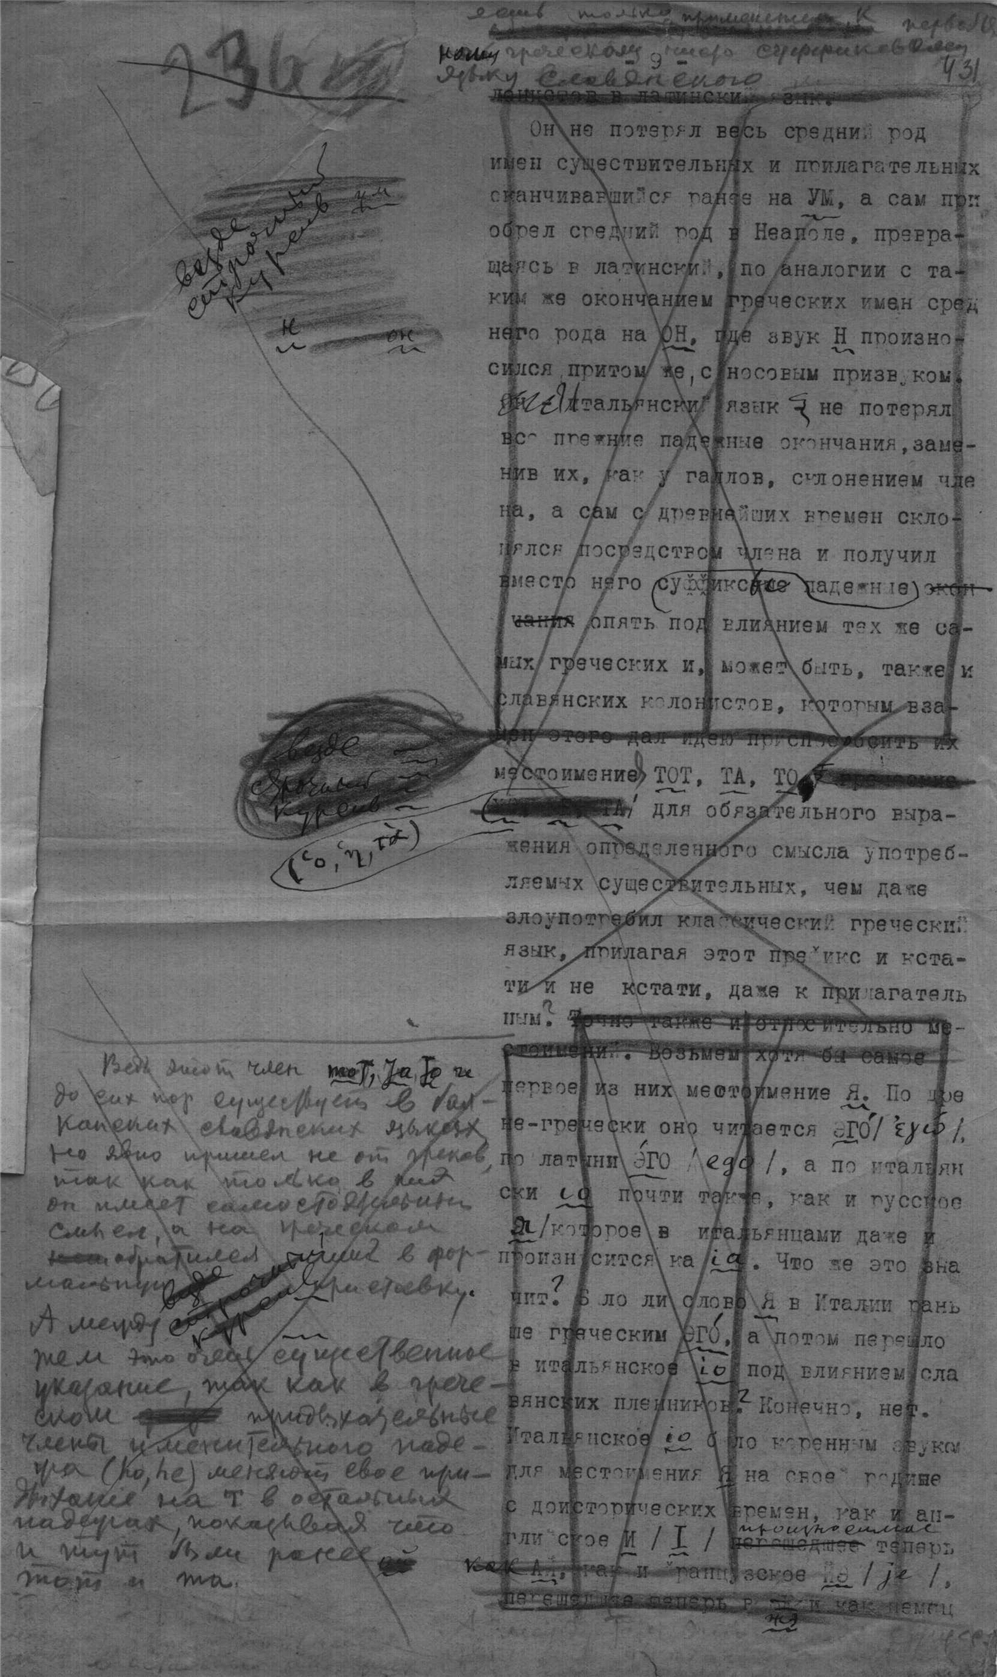 236
431
языку славянского
Он не потерял весь средний род
имен существительных и прилагательных
оканчивавшийся ранее на УМ, а сам при
обрел средний род в Неаполе, превра-
щаясь в латинский, по аналогии с та-
ким же окончанием греческих имен сред
него рода на ОН, где звук Н произно-
сился притом же, с носовым призвуком.
итальянский язык не потерял
все прежние падежные окончания, заме-
нив их, как у галлов, склонением чле
на, а сам с древнейших времен скло-
нялся посредством члена и получил
вместо него суффиксные падежные окон
чания опять под влиянием тех же са-
мых греческих и, может быть, также и
славянских колонистов, которым вза-
мен этого дал идею приспособить их
местоимение ТОТ, ТА, ТО
для обязательного выра-
жения определенного смысла употреб-
ляемых существительных, чем даже
злоупотребил классический греческий
язык, прилагая этот префикс и кста-
ти и не кстати, даже к прилагатель
ным? Точно также и относительно ме-
стоимений. Возьмем хотя бы самое
первое из них местоимение Я. По дре
не-гречески оно читается ЭГО/ ἐγώ /,
по латыни ЭГО / ego /, а по итальян
ски io почти также, как и русское
я /которое в итальянцами даже и
произносится ка ia. Что же это зна
чит? Было ли слово Я в Италии рань
ше греческим ЭГО, а потом перешло
в итальянское io под влиянием сла
вянских пленников? Конечно, нет.
Итальянское io было коренным звуком
для местоимения Я на своей родине
с доисторических времен, как и ан-
глийское И / I / произносимое перешедшее теперь
как АЙ, как и французское / je /,
перешедшее теперь в как немец
жэ
везде
строчный
курсив
ум
н
он
везде
строчный
курсив
(ὁ, ἡ, τὰ)
Ведь этот член тот, та, то и
до сих пор существует в Бал-
канских славянских языках,
но явно пришел не от греков,
так как только в них
он имеет самостоятельный
смысл, а на греческом
обратился в фор-
мальную приставку.
везде
строчный
курсив
А между
тем это очень существенное
указание, так как в грече-
ском придыхательные
члены именительного паде-
жа (ho, he) меняют свое при-
дыхание на т в остальных
падежах, показывая что
и тут были ранее
тот и та.